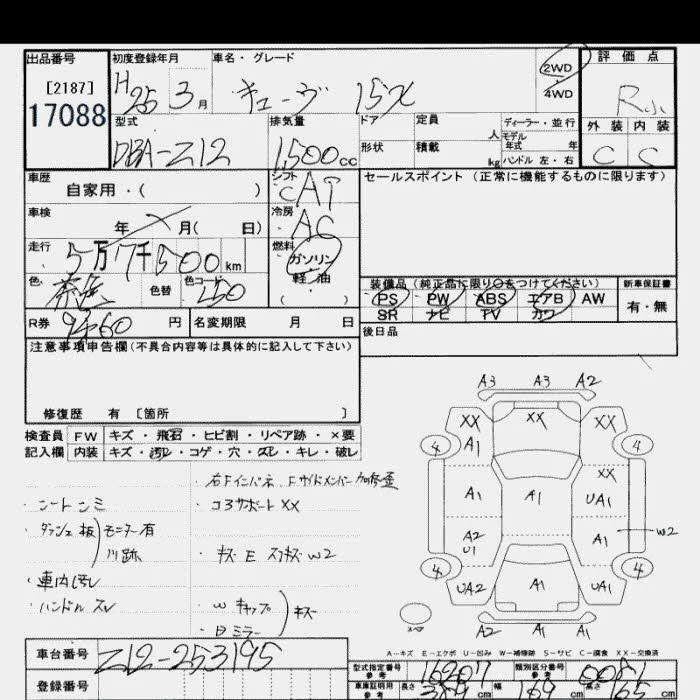 出品番号
[2187]
17088
初度登録年月
H25 3月
車名・グレード
キューブ 15X
2WD
4WD
評価点
R
外装 内装
C C
型式
DBA-Z12
排気量
1,500cc
ドア
定員 人
形状
積載 kg
ディーラー・並行
モデル年式 年
ハンドル 左・右
車歴
自家用・( )
シフト
CAT
冷房
AC
車検
年 月( 日)
走行
5万7千500km
燃料
ガソリン
軽油
( )
色
色替
色コード
R券
円
名変期限 月 日
セールスポイント(正常に機能するものに限ります)
装備品(純正品に限り○をつけてください)
PS PW ABS エアB AW
SR ナビ TV カワ
新車保証書
有・無
後日品
注意事項申告欄(不具合内容等は具体的に記入して下さい)
修復歴 有 [箇所 ]
検査員 FW キズ・飛石・ヒビ割・リペア跡・×要
記入欄 内装 キズ・汚レ・コゲ・穴・スレ・キレ・破レ
・右Fインパネ、Fサイドメンバー
・コアサポートXX
・シートシミ
・ダッシュ板 モニター有
・キズ E W2
・車内汚レ
・ハンドルスレ
・W キャップ
・Bミラー
キズ
A3 A3 A2
XX XX XX
A1
4 4
A1 A1 XX
UA1
A2
U1
A1
W2
4 4
UA2 A1 UA1
A2 A1 A1
A-キズ E-エクボ U-凹み W-補修跡 S-サビ C-腐食 XX-交換済
車台番号
Z12-253195
登録番号
型式指定番号
参考
類別区分番号
参考
車庫証明用
参考
長さ cm
幅 169 cm
高さ 165 cm